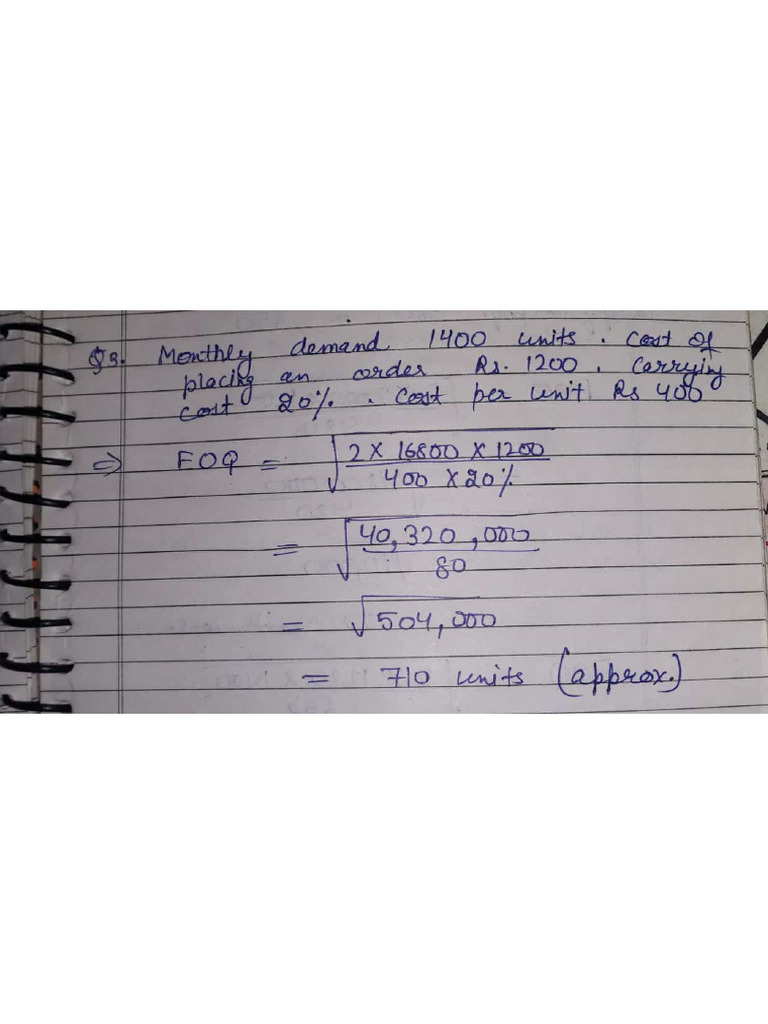 Q3. Monthly demand 1400 units. Cost of
placing an order Rs. 1200. Carrying
cost 20%. Cost per unit Rs 400
⇒ EOQ = √2 X 16800 X 1200
400 X 20%
= √40,320,000
80
= √504,000
= 710 units (approx.)